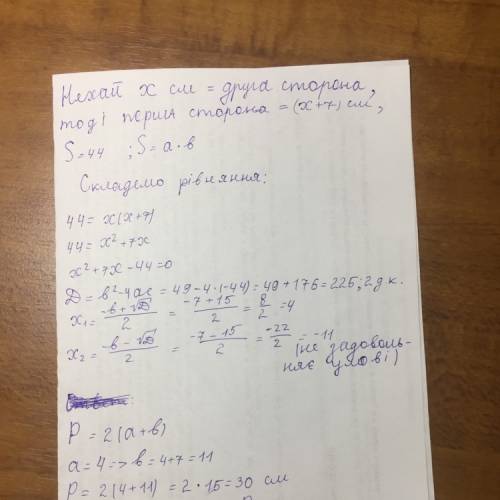 Нехай х см = друга сторона,
тоді перша сторона = (х+7) см,
S=44 ; S=a·в
Складемо рівняння:
44= х(х+7)
44= х²+7х
х²+7х-44=0
Д= в²-4ас = 49-4·(-44)= 49+176=225; 2 д.к.
х₁= (-в+√Д)/2 = (-7+15)/2 = 8/2 =4
х₂= (-в-√Д)/2 = (-7-15)/2 = -22/2 = -11
(не задоволь-
няє умові)
Р = 2(а+в)
а=4=>в=4+7=11
Р= 2(4+11) = 2·15=30 см